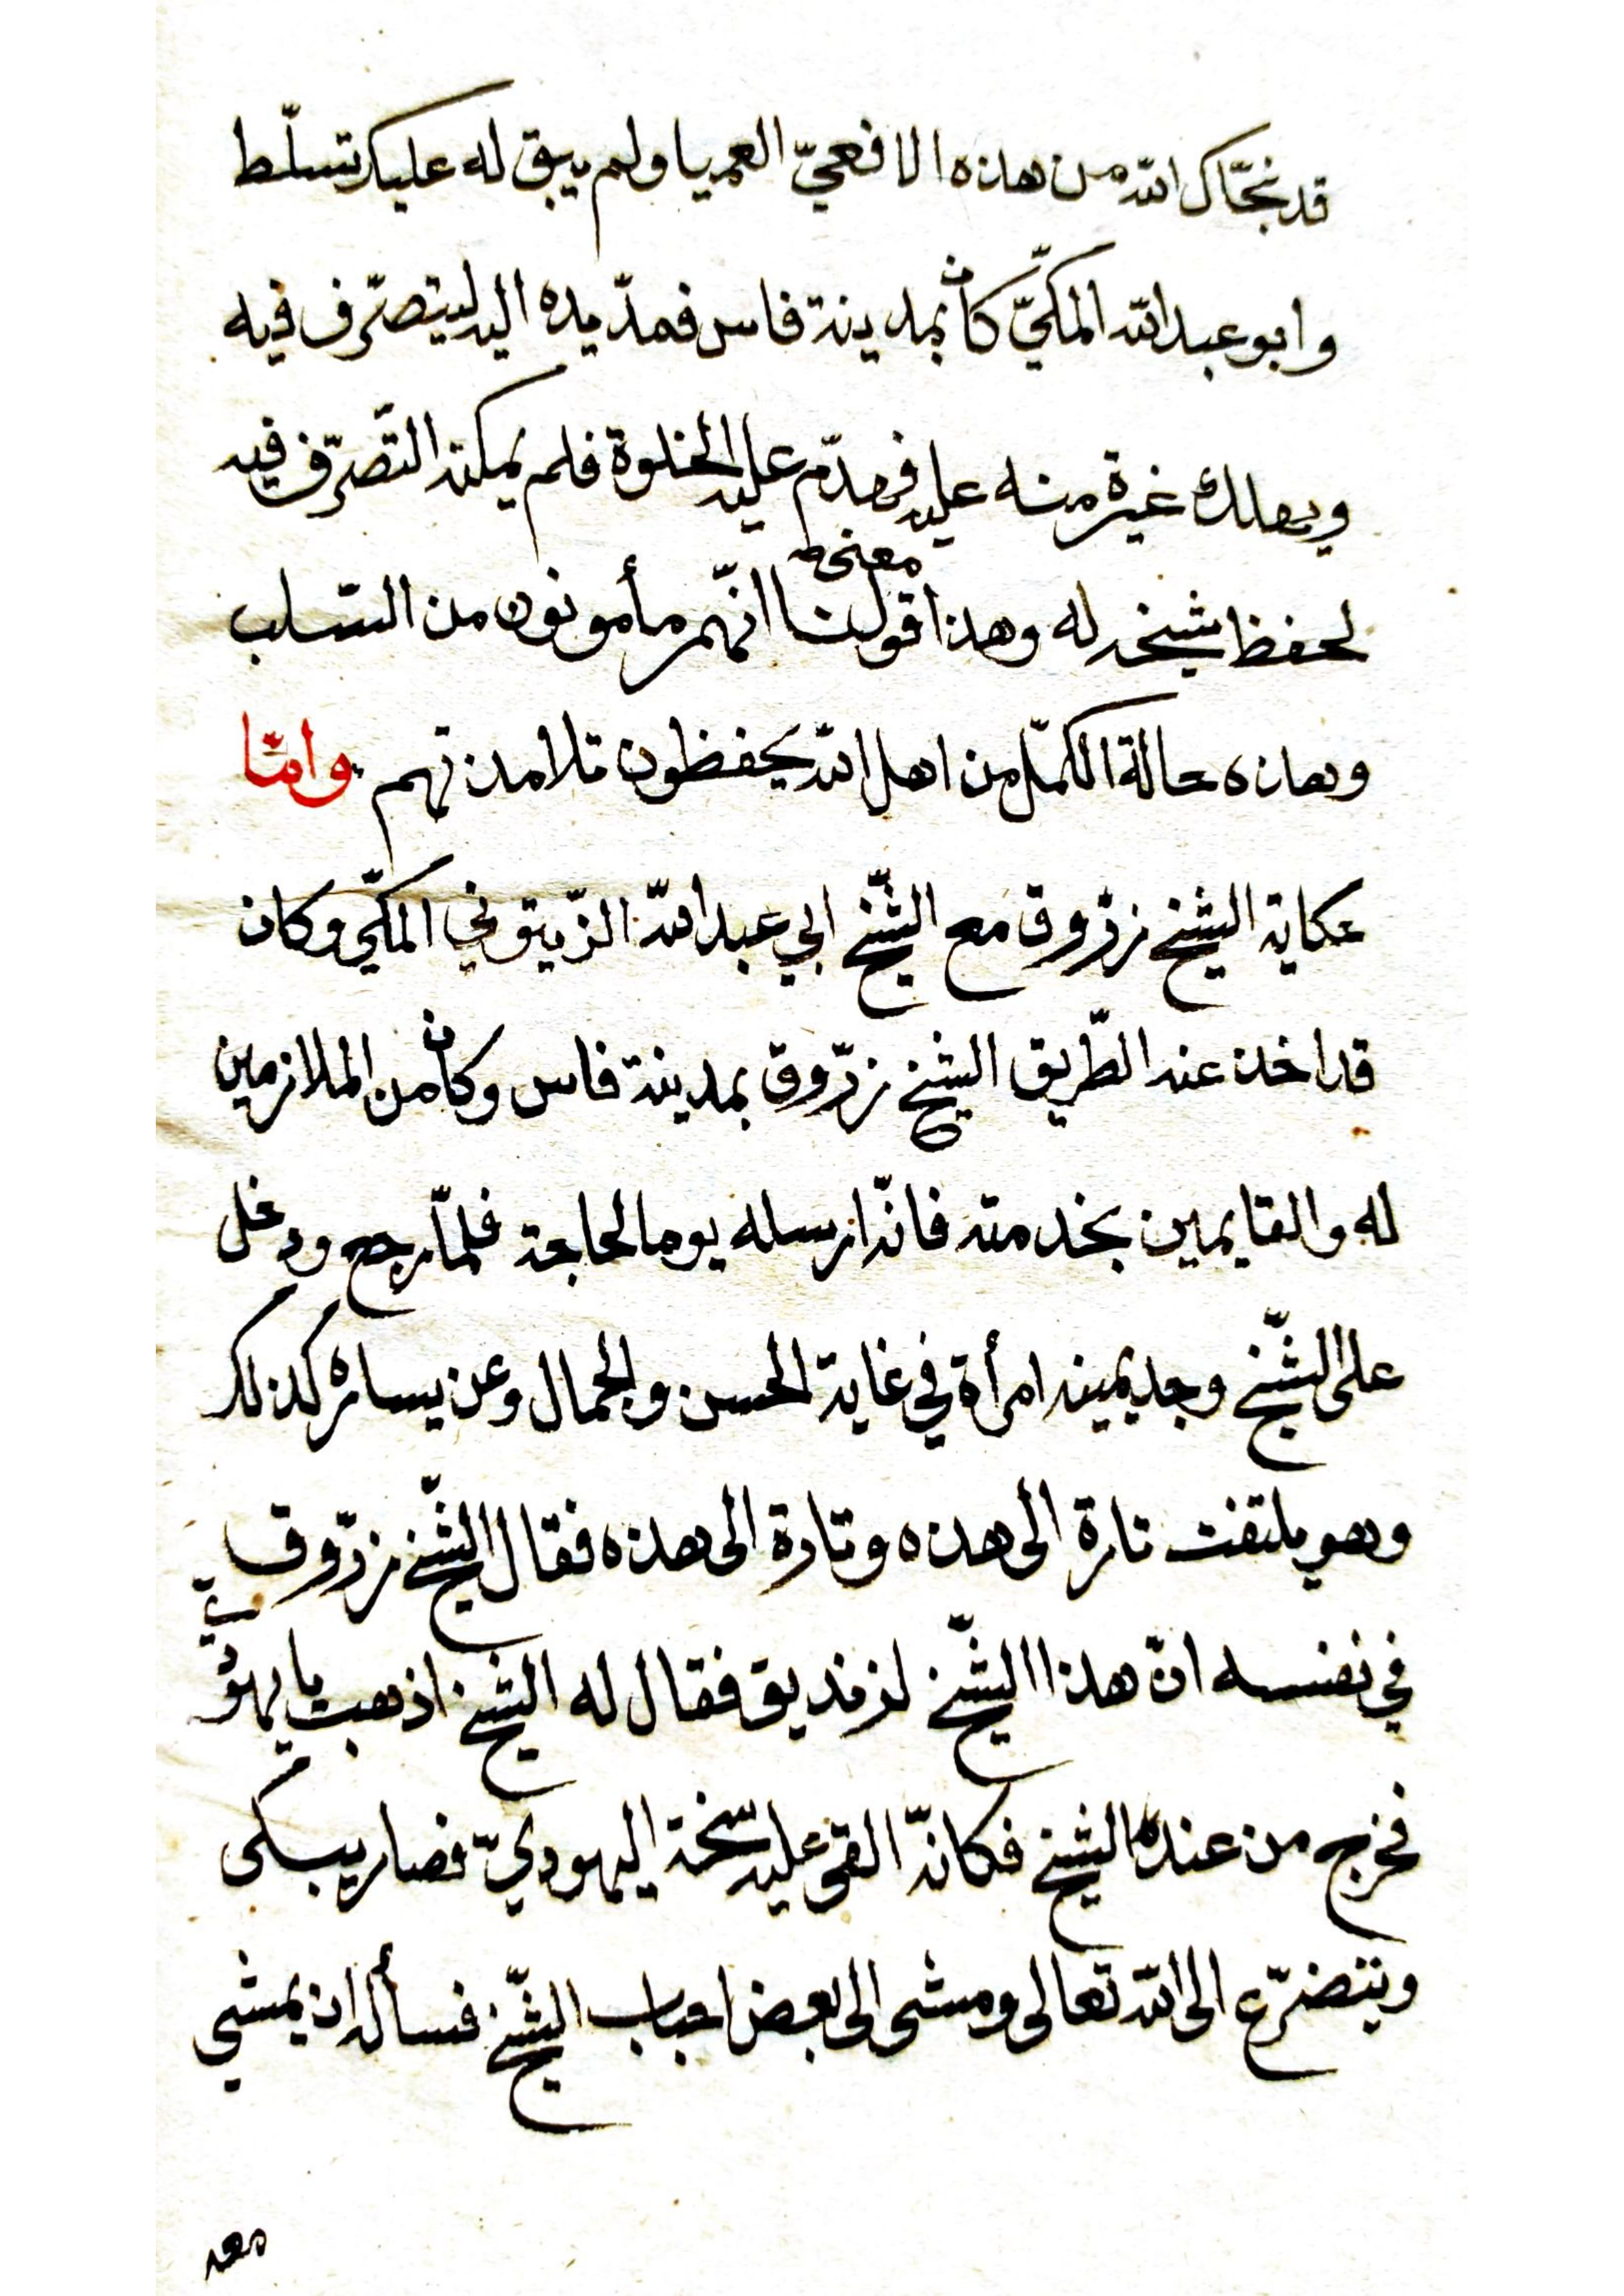 قد نجّاك الله من هذه الافعيّ العميا ولم يبق له عليك تسلّط
وابو عبد الله المكيّ كان بمدينة فاس فمدّ يده اليه ليتصرّف فيه
ويهلك غيرة منه عليه فهدّم عليه الخلوة فلم يمكنه التّصرّف فيه
لحفظ شيخه له وهذا معنى قولنا انّهم مأمونون من السّلب
وهذه حالة الكمّل من اهل الله يحفظون تلامذتهم وامّا
حكاية الشيخ زرّوق مع الشّيخ ابي عبد الله الزّيتوني المكّي وكان
قد اخذ عنه الطّريق الشيخ زرّوق بمدينة فاس وكان من الملازمين
له والقايمين بخدمته فانّه ارسله يوما لحاجة فلمّا رجع ودخل
على الشّيخ وجد يمينه امرأة في غاية الحسن والجمال وعن يساره كذلك
وهو يلتفت تارة الى هذه وتارة الى هذه فقال الشّيخ زرّوق
في نفسه انّ هذا الشّيخ لزنديق فقال له الشيخ اذهب يا يهوديّ
فخرج من عنده الشيخ فكانّه القى عليه سخّة اليهوديّ فصار يبكى
ويتضرّع الى الله تعالى ومشى الى بعض احباب الشّيخ فسأله ان يمشي
معه